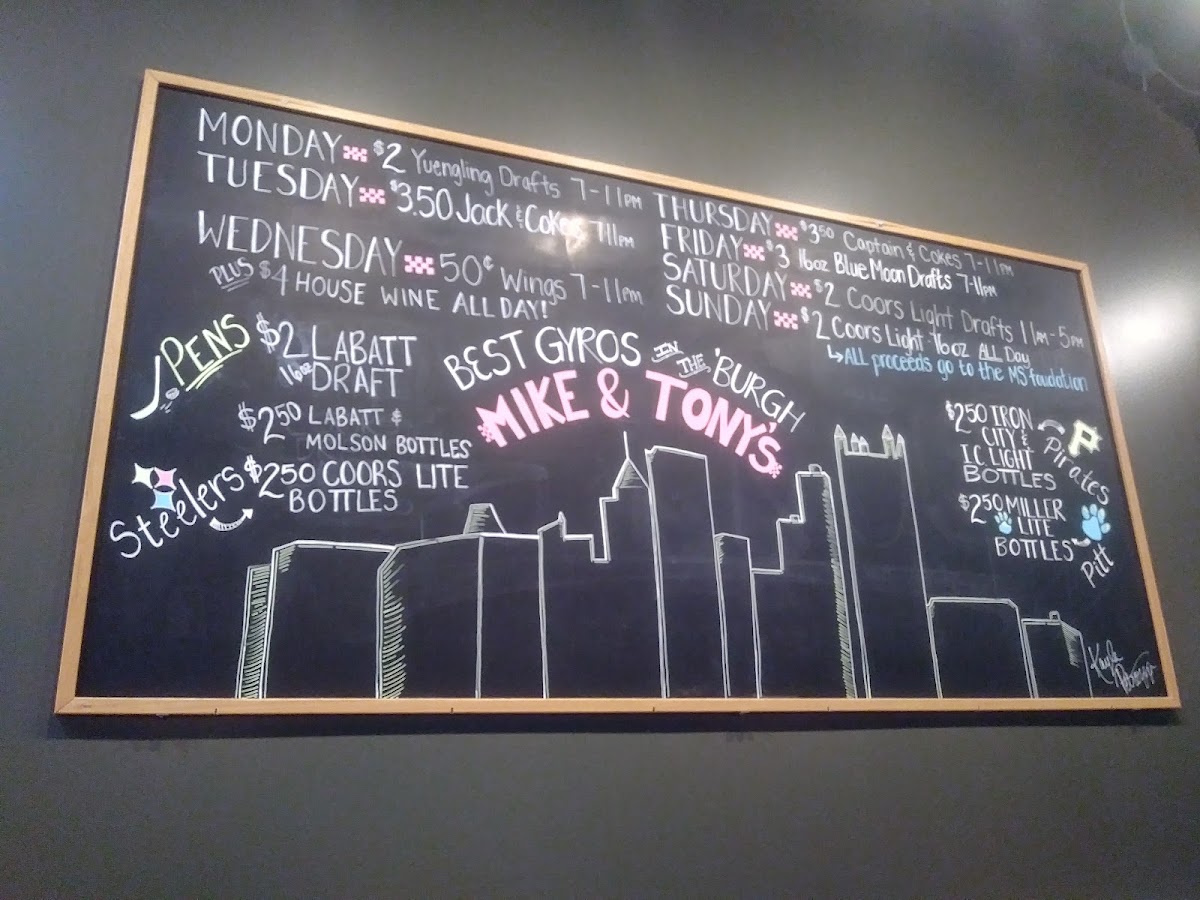 MONDAY $2 Yuengling Drafts 7-11PM
TUESDAY $3.50 Jack & Cokes 7-11PM
WEDNESDAY 50¢ Wings 7-11PM
PLUS $4 HOUSE WINE ALL DAY!
THURSDAY $3.50 Captain & Cokes 7-11PM
FRIDAY $3 16oz Blue Moon Drafts 7-11PM
SATURDAY $2 Coors Light Drafts 11AM-5PM
SUNDAY $2 Coors Light 16oz ALL Day
ALL proceeds go to the MS foudation
PENS
$2 LABATT
16oz DRAFT
$2.50 LABATT &
MOLSON BOTTLES
Steelers
$2.50 COORS LITE
BOTTLES
BEST GYROS IN THE 'BURGH
MIKE & TONY'S
$2.50 IRON
CITY &
I.C. LIGHT
BOTTLES
P
Pirates
$2.50 MILLER
LITE
BOTTLES
Pitt
Kayla